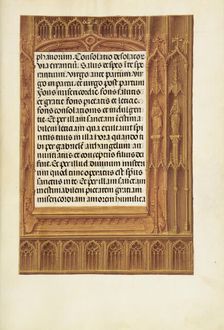 phanorum. Consolatio desolatorum
via errantium. Salus et spes i te spe
rantium. Virgo ante partum vir
go in partu. et virgo post partum
Fons misericordie fons salutis
et gratie fons pietatis et leticie.
fons consolationis et indulgen
tie. Et per illam sanctam ines
timabilem leticiam qua exultavit spi
ritus tuus in illa hora quando ti
bi per gabrielem archangelum an
nuntiatus et conceptus filius dei
fuit. Et per illud divinum miste
rium quod tunc operatus est spi
ritus sanctus in te. Et per illam sanctam
inestimabilem pietatem gratiam
misericordiam amorem humilita